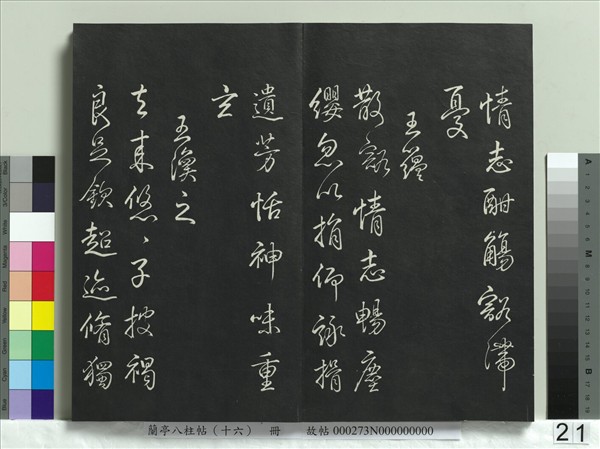 情志酣觴豁滯
憂
王蘊
散豁情志暢塵
纓忽以捐仰詠挹
遺芳恬神味重
玄
王渙之
去來悠〻子披褐
良足欽超迹脩獨
蘭亭八柱帖(十六) 冊 故帖000273N000000000
21